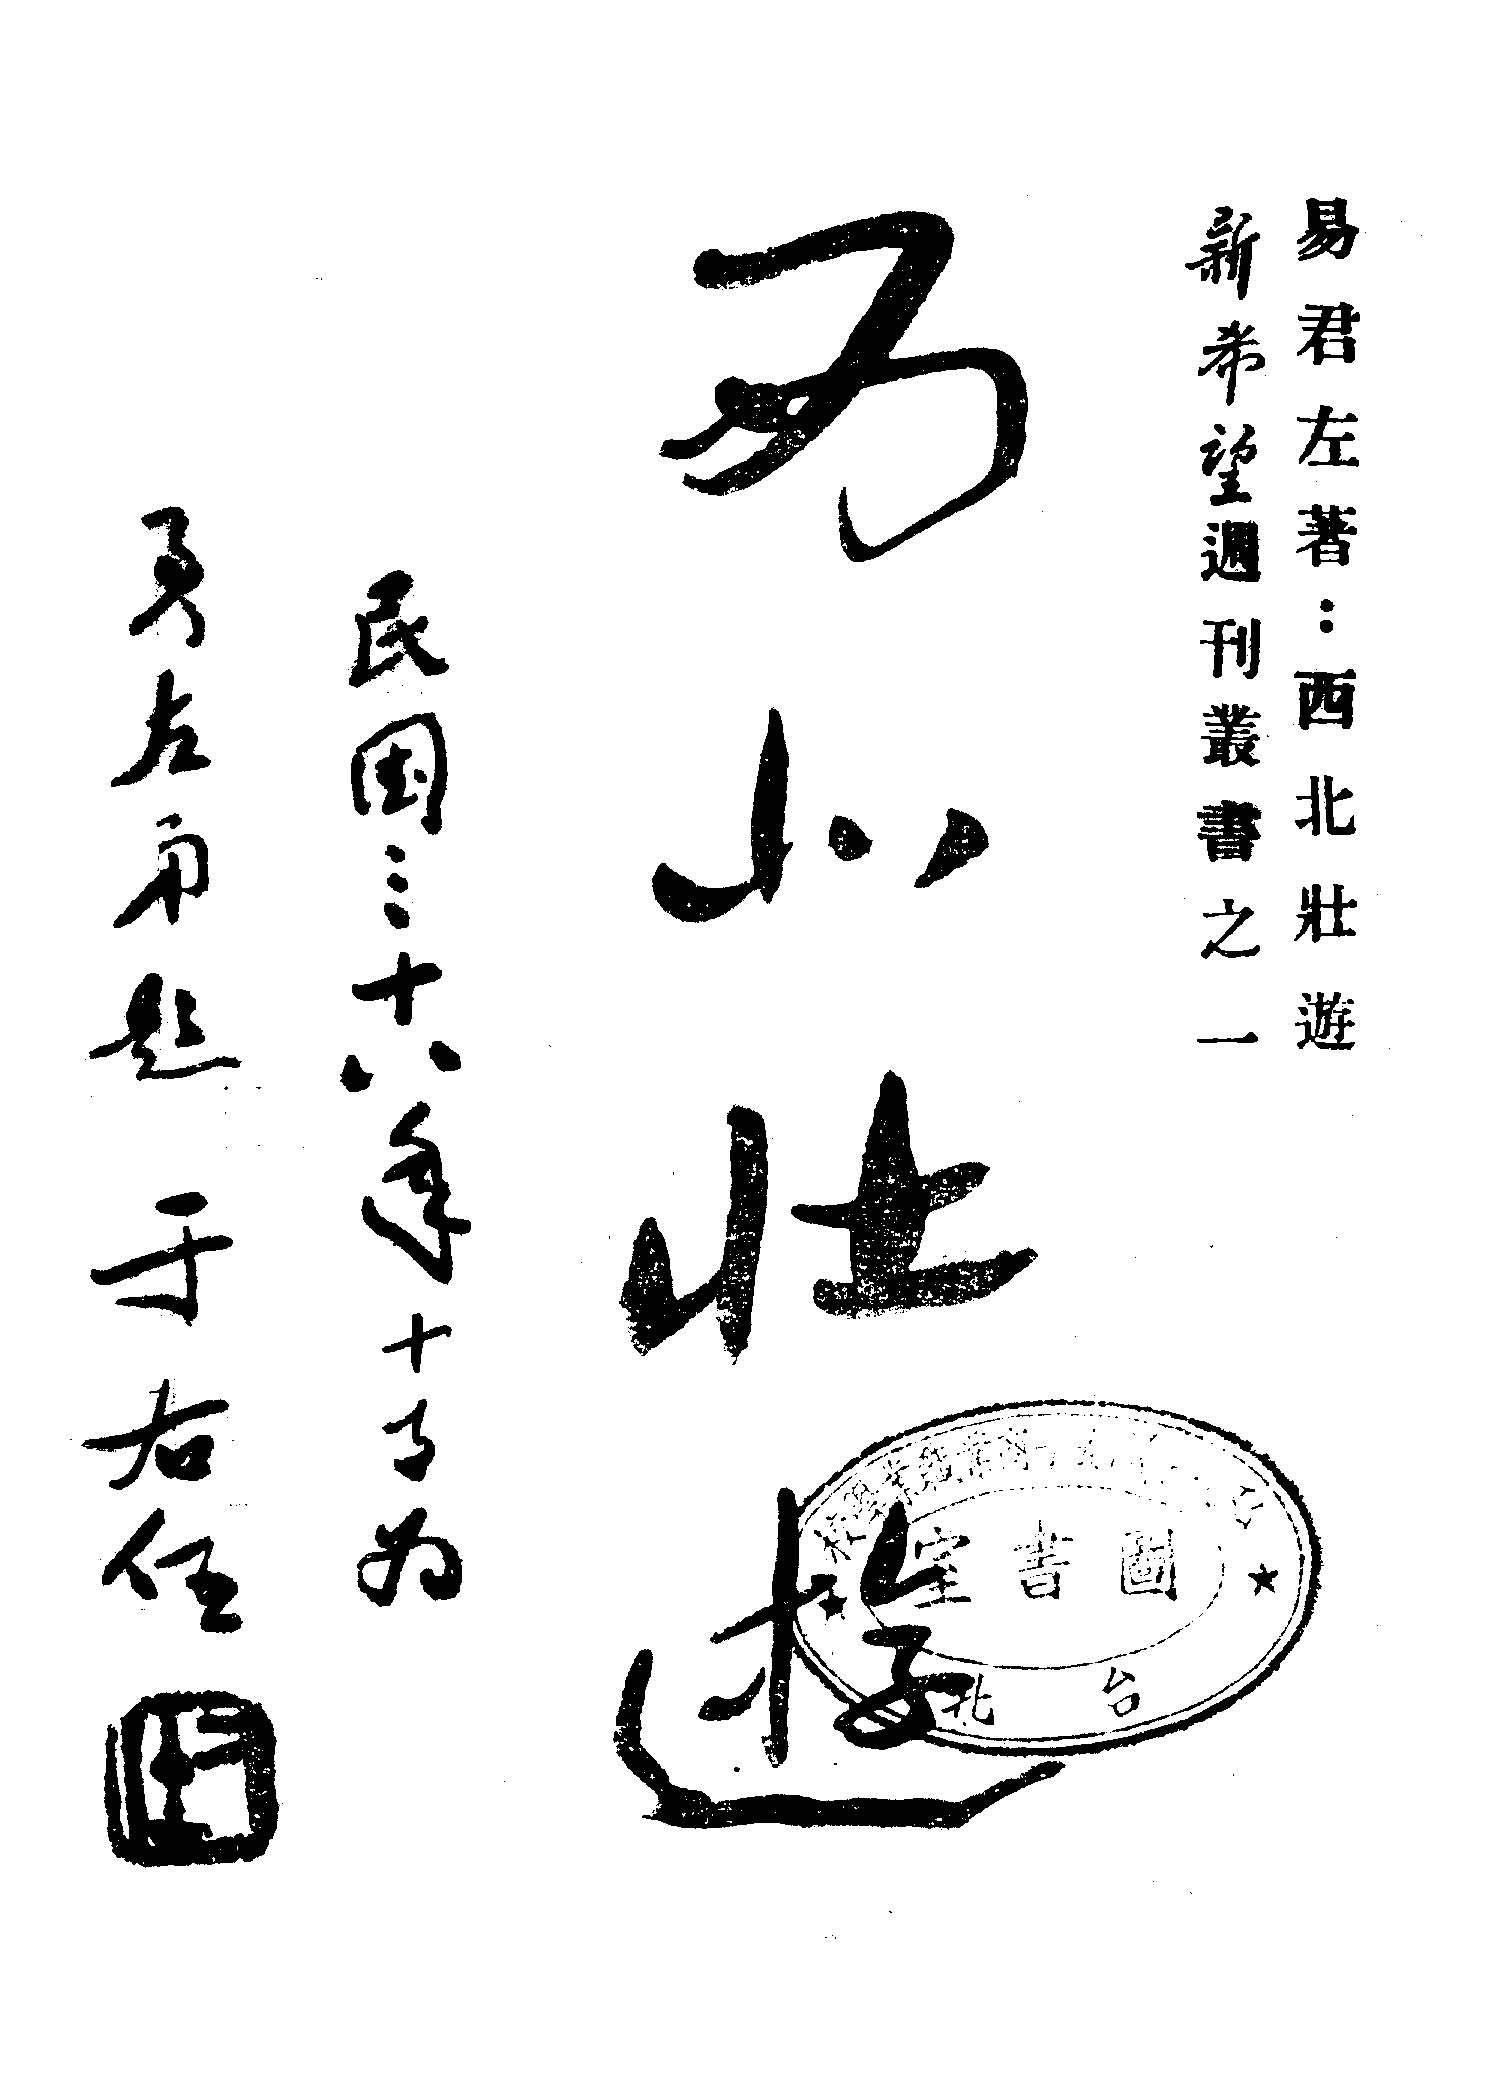 易君左著：西北壯遊
新希望週刊叢書之一
西北壯遊
民国三十八年十月为
君左兄題 于右任
圖書室
台北